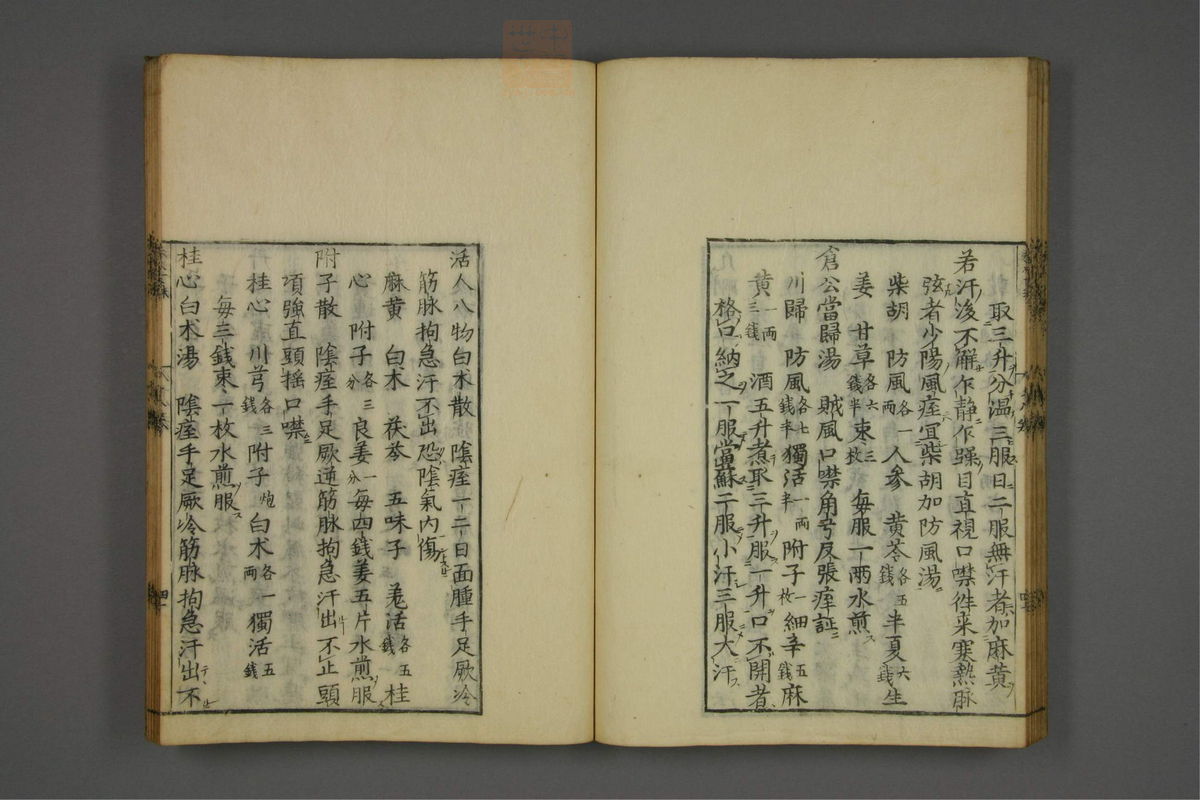 取三升分温三服日二服無汗者加麻黄
若汗後不解乍静乍躁目直視口噤徃来寒熱脉
弦者少陽風痓宜柴胡加防風湯
柴胡 防風各一両 人参 黄芩各五錢 半夏六錢 生
姜 甘草各六錢半 束三枚 毎服一两水煎
倉公當歸湯 賊風口噤角弓反張痓証
川歸 防風各七錢半 獨活一両半 附子一枚 細辛五錢 麻
黄一両三錢 酒五升煮取三升服一升口不開者
格口納之一服當蘇二服小汗三服大汗
活人八物白朮散 陰痓一二日面腫手足厥冷
筋脉拘急汗不出恐陰氣内傷
麻黄 白朮 茯苓 五味子 羌活各五錢 桂
心 附子各三分 良姜一分 毎四錢姜五片水煎服
附子散 陰痓手足厥逆筋脉拘急汗出不止頭
項強直頭揺口噤
桂心 川芎各三錢 附子炮 白朮各一両 獨活五錢
毎三錢束一枚水煎服
桂心白朮湯 陰痓手足厥冷筋脉拘急汗出不